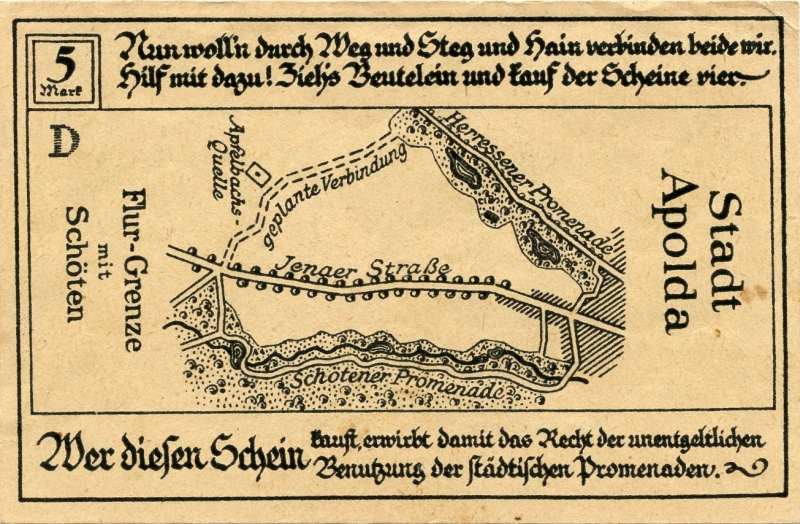 5
Mark
Nun woll'n durch Weg und Steg und Hain verbinden beide wir.
Hilf mit dazu! Zieh's Beutelein und kauf der Scheine vier.
D
Apfelbachs-
Quelle
geplante Verbindung
Herressener Promenade
Flur-Grenze
mit
Schöten
Jenaer Straße
Stadt
Apolda
Schötener Promenade
Wer diesen Schein kauft, erwirbt damit das Recht der unentgeltlichen
Benutzung der städtischen Promenaden.